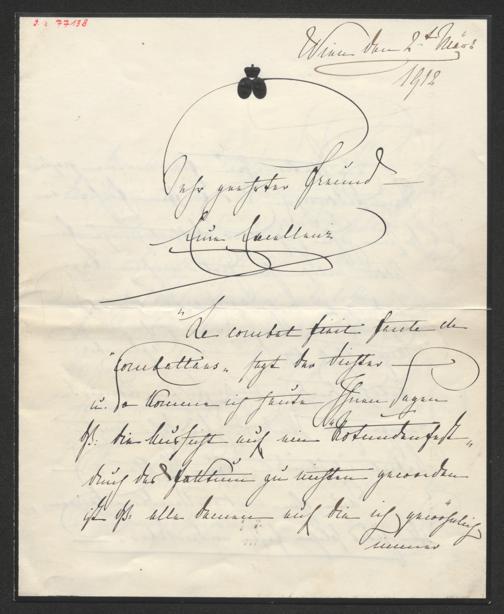 J. N. 77138
Wien den 2t März
1912
Sehr geehrter Freund –
Eure Excellenz
"Le combat finit faute de
"combattans" sagt der Dichter –
u. so komme ich heute Ihnen sagen
dß: die Aussicht auf ein "Rotundenfest"
durch das factum zu nichten geworden
ist dß: alle Damen auf die ich gewöhnlich
immer